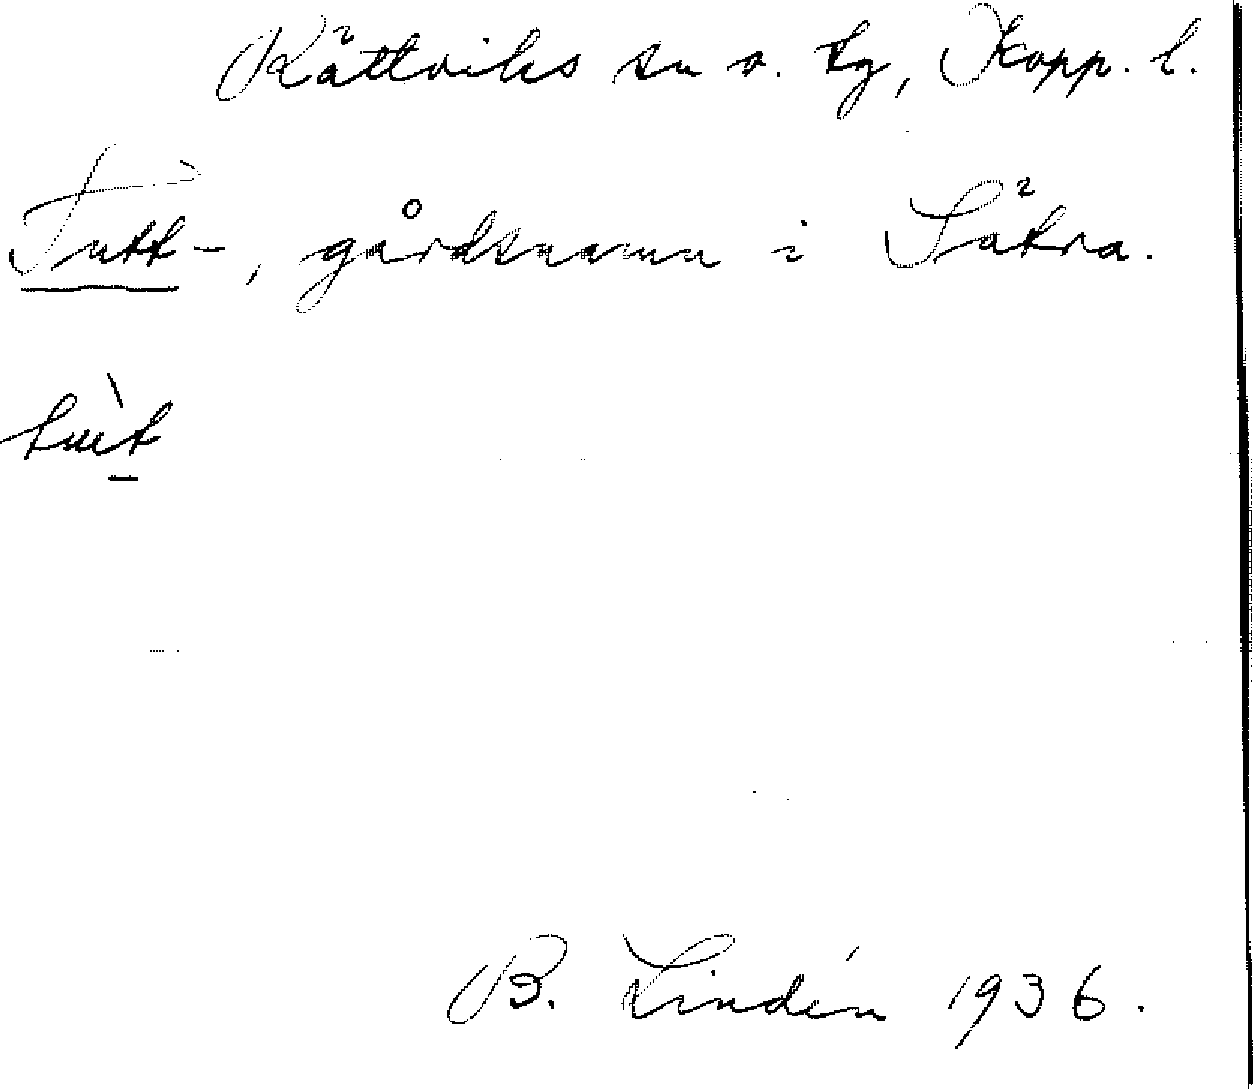 Rättviks sn o. tg, Kopp. l.
Tutt-, gårdsnamn i Sätra.
B. Lindén 1936.